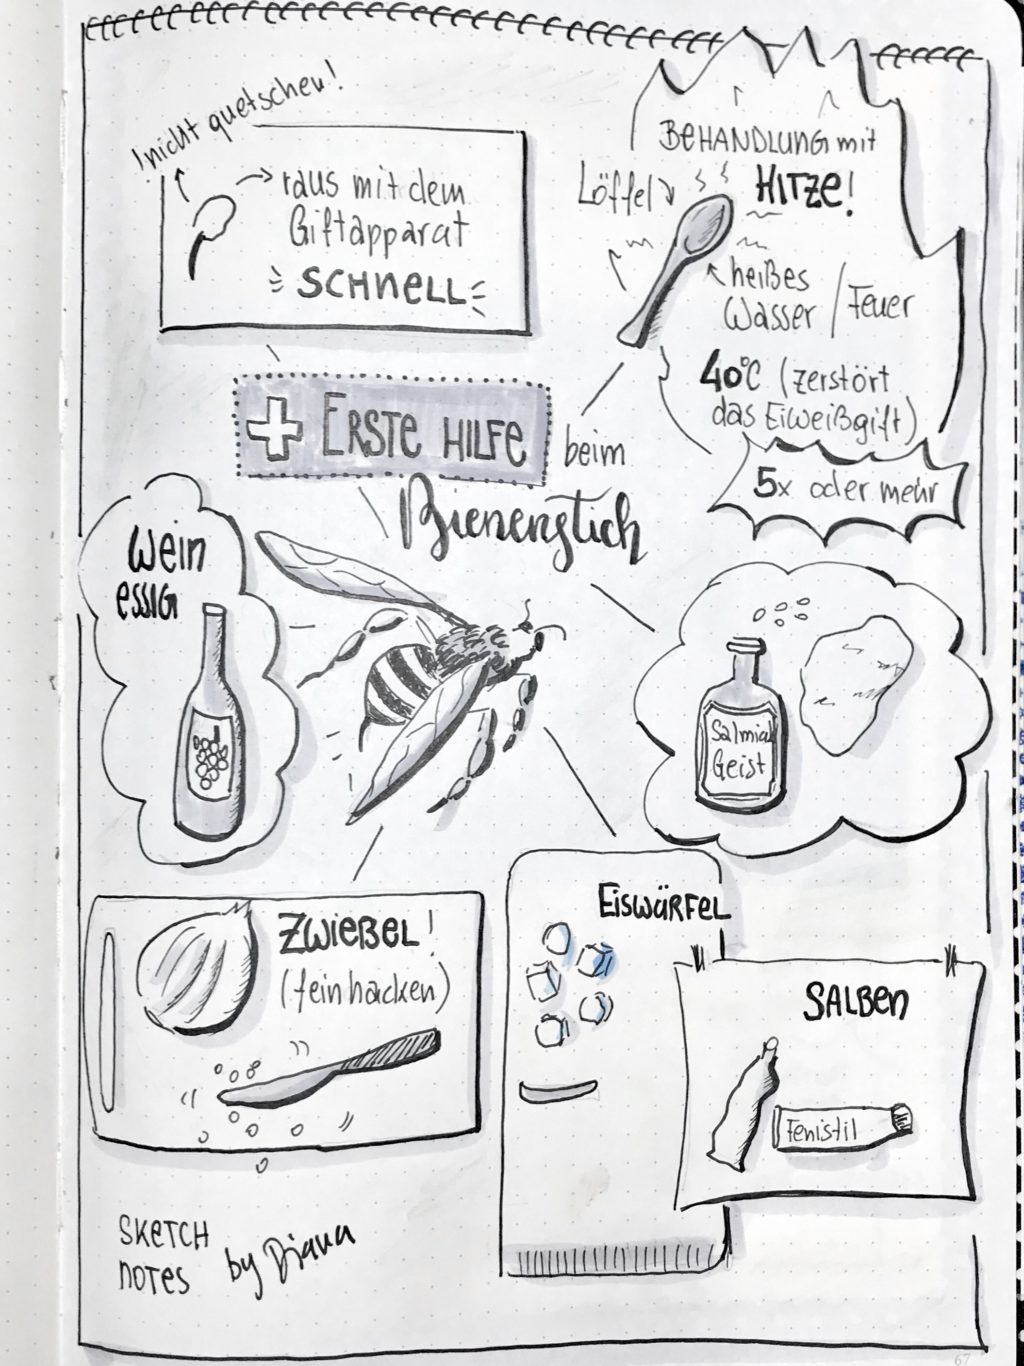 !nicht quetschen!
raus mit dem
Giftapparat
SCHNELL
BEHANDLUNG mit
HITZE!
Löffel
heißes
Wasser / Feuer
40°C (zerstört
das Eiweißgift)
5x oder mehr
ERSTE HILFE
beim
Bienenstich
Wein
ESSIG
Salmiak
Geist
ZWIEBEL!
(feinhacken)
EISWÜRFEL
SALBEN
Fenistil
SKETCH
NOTES
by Diana
67